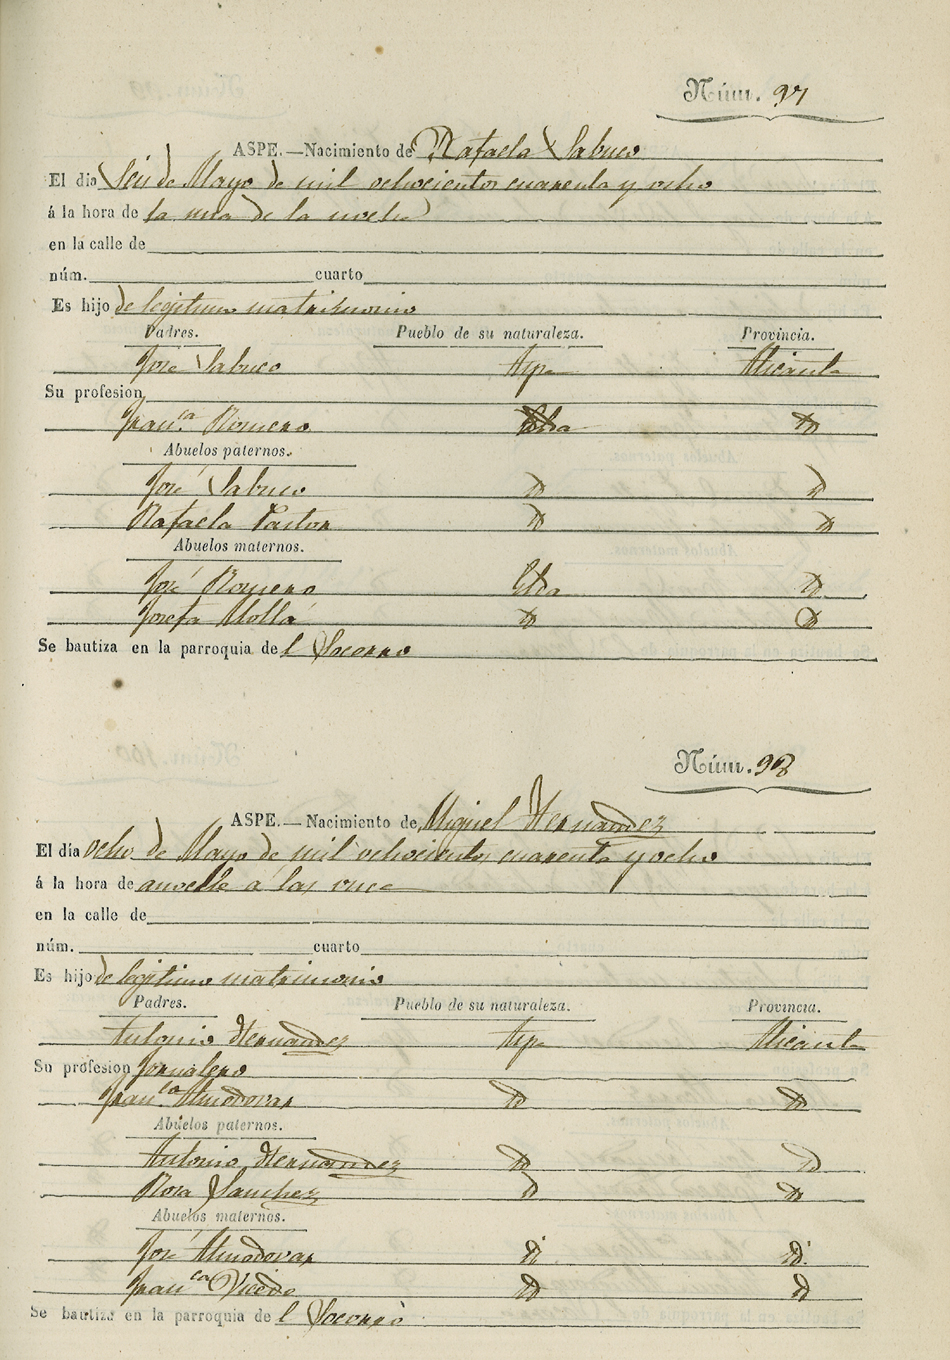 Núm. 97
ASPE.—Nacimiento de Rafaela Sabuco
El dia Seis de Mayo de mil ochocientos cuarenta y ocho
á la hora de la una de la noche
en la calle de
núm. cuarto
Es hijo de legitimo matrimonio
Padres. Pueblo de su naturaleza. Provincia.
José Sabuco Aspe Alicante
Su profesion
Fran.ca Romero Elda Id
Abuelos paternos.
José Sabuco Id Id
Rafaela Pastor Id Id
Abuelos maternos.
José Romero Elda Id
Josefa Mollá Id Id
Se bautiza en la parroquia del Socorro
Núm. 98
ASPE.—Nacimiento de Miguel Hernandez
El día ocho de Mayo de mil ochocientos cuarenta y ocho
á la hora de anoche a las once
en la calle de
núm. cuarto
Es hijo de legitimo matrimonio
Padres. Pueblo de su naturaleza. Provincia.
Antonio Hernandez Aspe Alicante
Su profesion Jornalero
Fran.ca Almodovar Id Id
Abuelos paternos.
Antonio Hernandez Id Id
Rosa Sanchez Id Id
Abuelos maternos.
José Almodovar Id Id
Fran.ca Vicedo Id Id
Se bautiza en la parroquia del Socorro